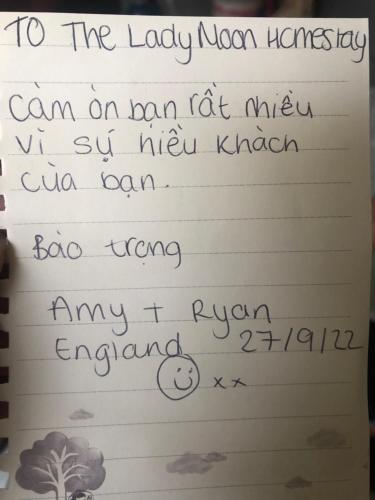 TO The Lady Moon Homestay
Càm òn bạn rất nhiều
vì sứ hiều khách
của bạn.
Bảo trọng
Amy + Ryan
England 27/9/22
x x